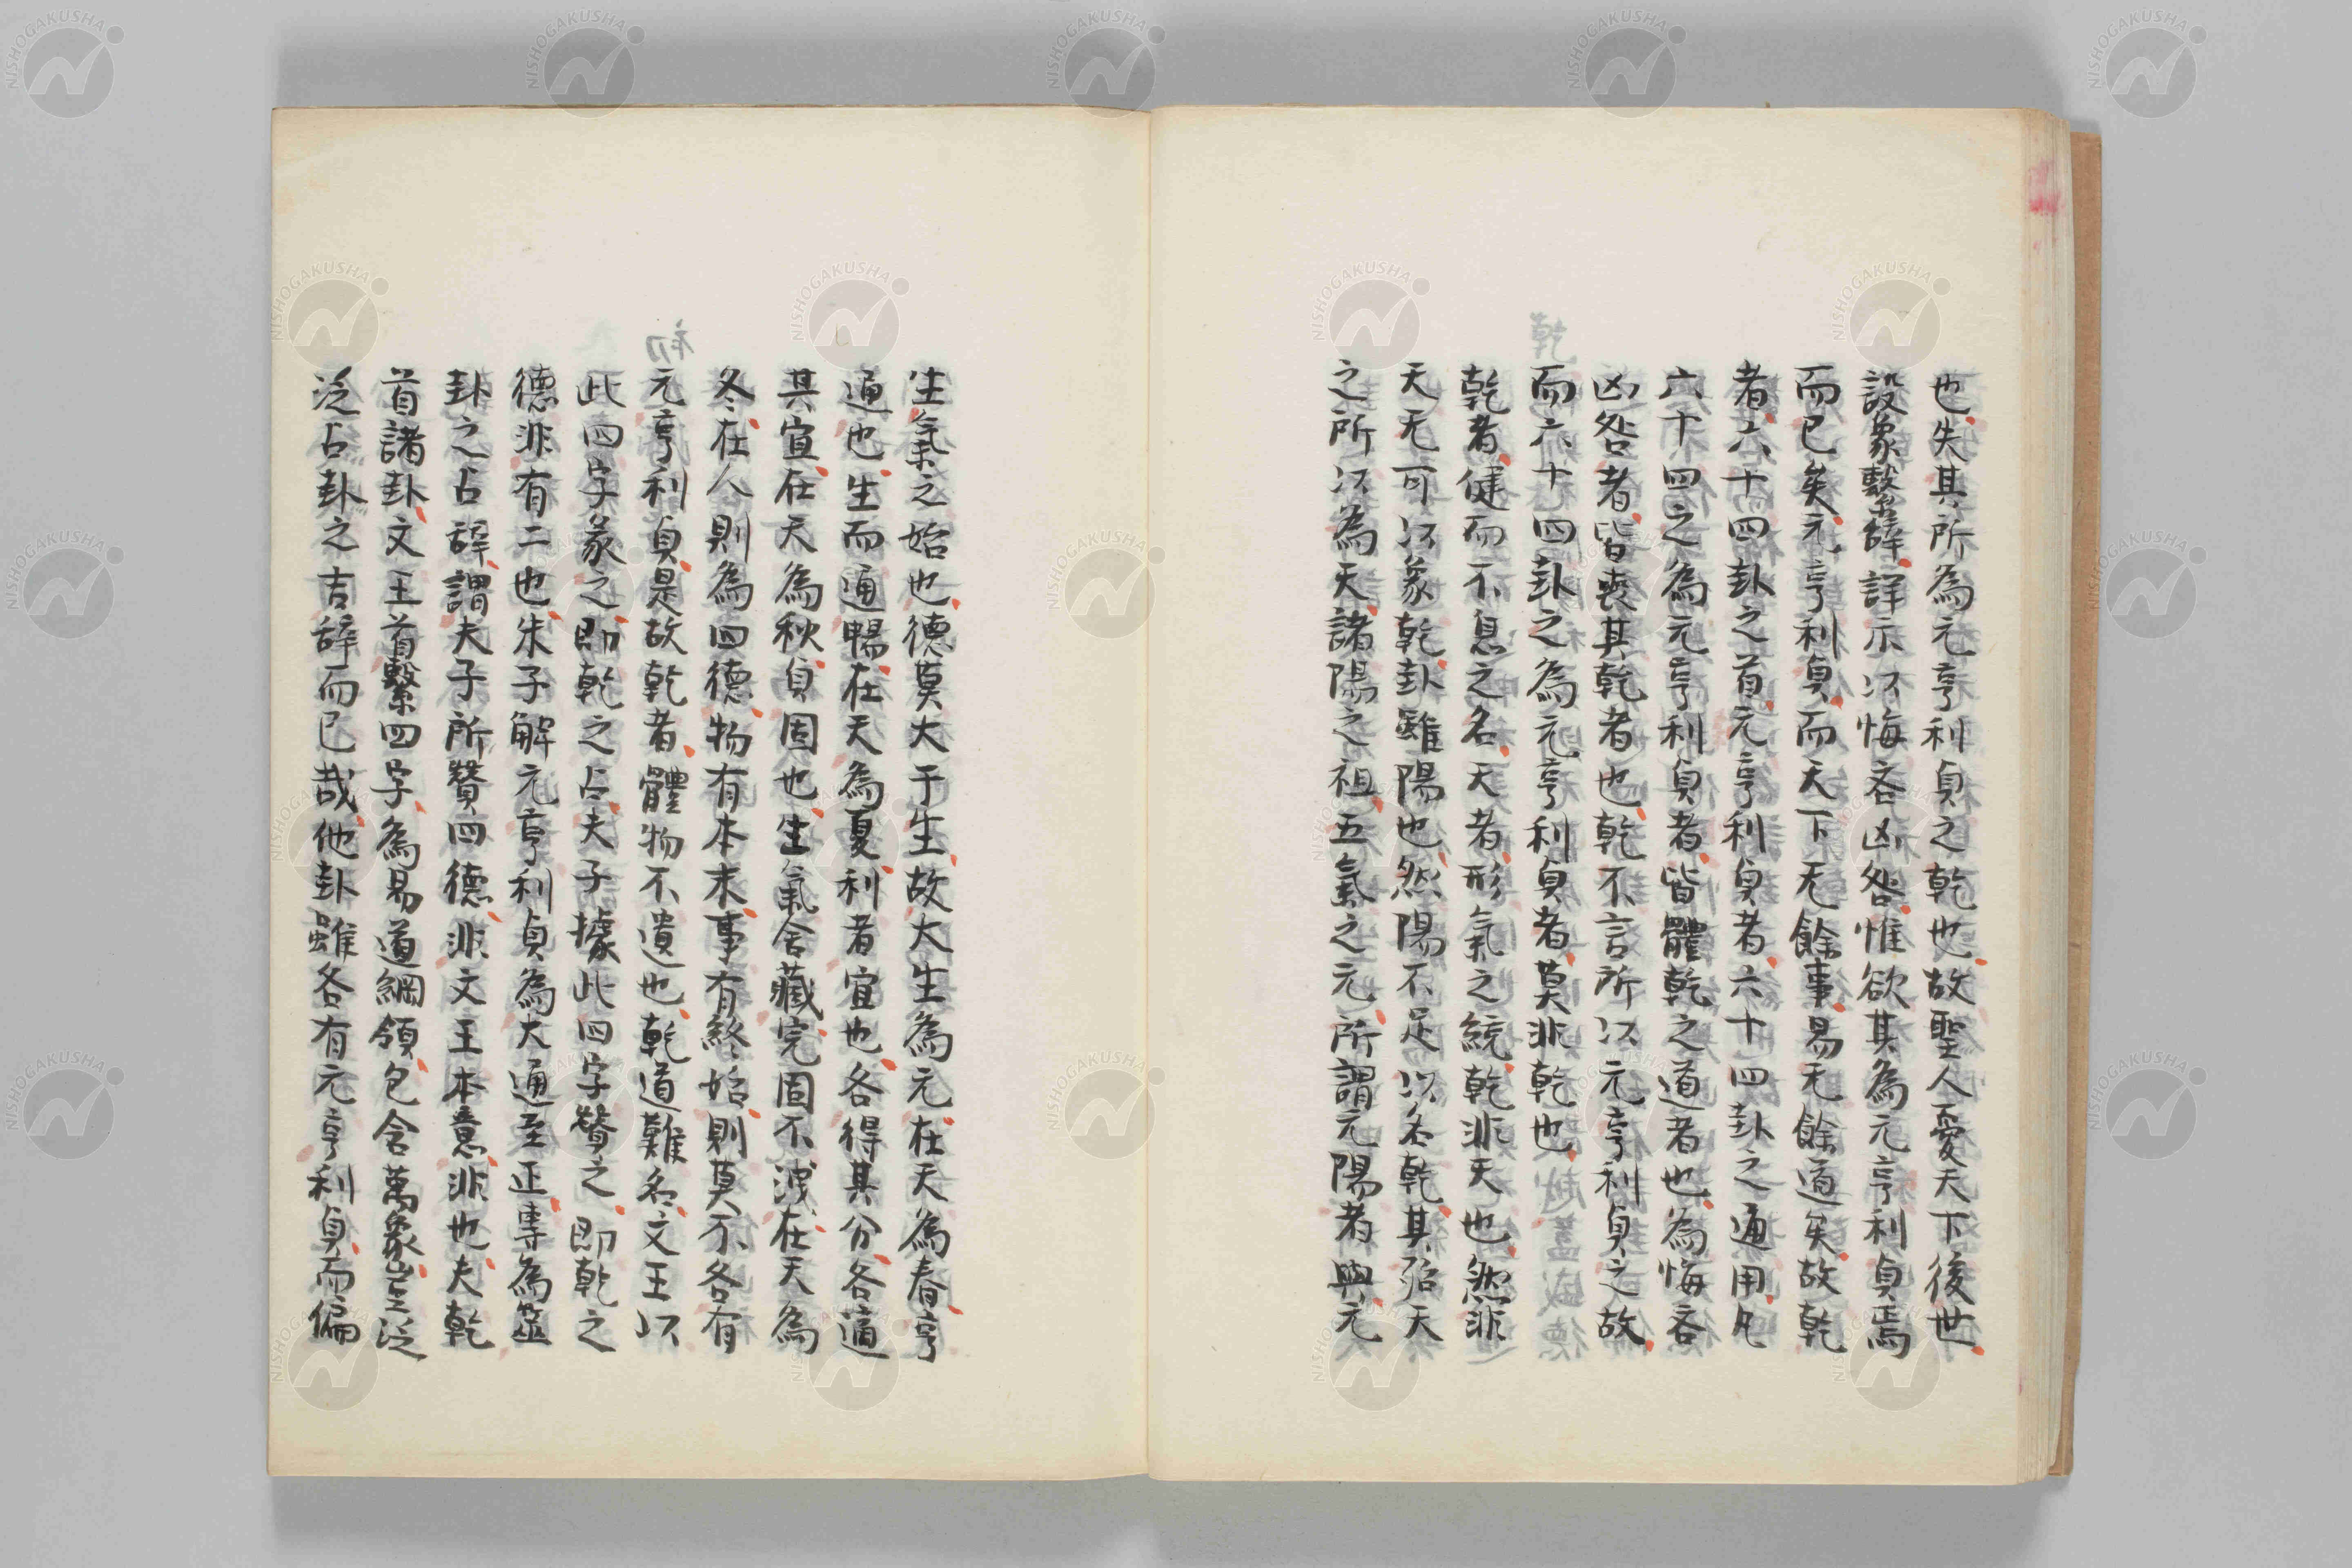 也失其所為元亨利貞之乾也故聖人憂天下後世
設象繫辭詳示以悔吝凶咎惟欲其為元亨利貞焉
而已矣元亨利貞而天下无餘事易无餘道矣故乾
者六十四卦之首元亨利貞者六十四卦之通用凡
六十四之為元亨利貞者皆體乾之道者也為悔吝
凶咎者皆喪其乾者也乾不言所以元亨利貞之故
而六十四卦之為元亨利貞者莫非乾也
乾者健而不息之名天者形氣之統乾非天也然非
天无可以象乾卦雖陽也然陽不足以名乾其殆天
之所以為天諸陽之祖五氣之元所謂元陽者與元
生氣之始也德莫大于生故大生為元在天為春亨
通也生而通暢在天為夏利者宜也各得其分各適
其宜在天為秋貞固也生氣舍藏完固不洩在天為
冬在人則為四德物有本末事有終始則莫不各有
元亨利貞是故乾者體物不遺也乾道難名文王以
初
此四字彖之即乾之占夫子據此四字贊之即乾之
德非有二也朱子解元亨利貞為大通至正專為筮
卦之占辭謂夫子所贊四德非文王本意非也夫乾
首諸卦文王首繫四字為易道綱領包含萬象豈泛
泛占卦之吉辭而已哉他卦雖各有元亨利貞而偏
NISHOGAKUSHA